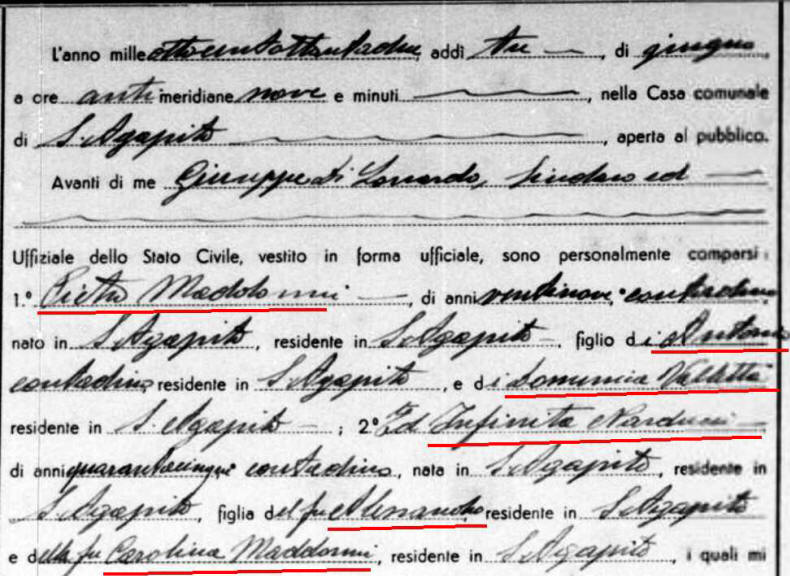 L'anno mille ottocentottantadue, addì tre, di giugno,
a ore anti meridiane nove e minuti, nella Casa comunale
di S. Agapito, aperta al pubblico.
Avanti di me Giuseppe di Leonardo, Sindaco ed
Uffiziale dello Stato Civile, vestito in forma ufficiale, sono personalmente comparsi:
1.° Pietro Maddonni, di anni ventinove, contadino,
nato in S. Agapito, residente in S. Agapito, figlio di Antonio
contadino, residente in S. Agapito, e di Domenica Valletta
residente in S. Agapito; 2° Ed Infinita Narducci
di anni quarantacinque contadina, nata in S. Agapito, residente in
S. Agapito, figlia del fu Alessandro, residente in S. Agapito
e della fu Carolina Maddonni, residente in S. Agapito, i quali mi